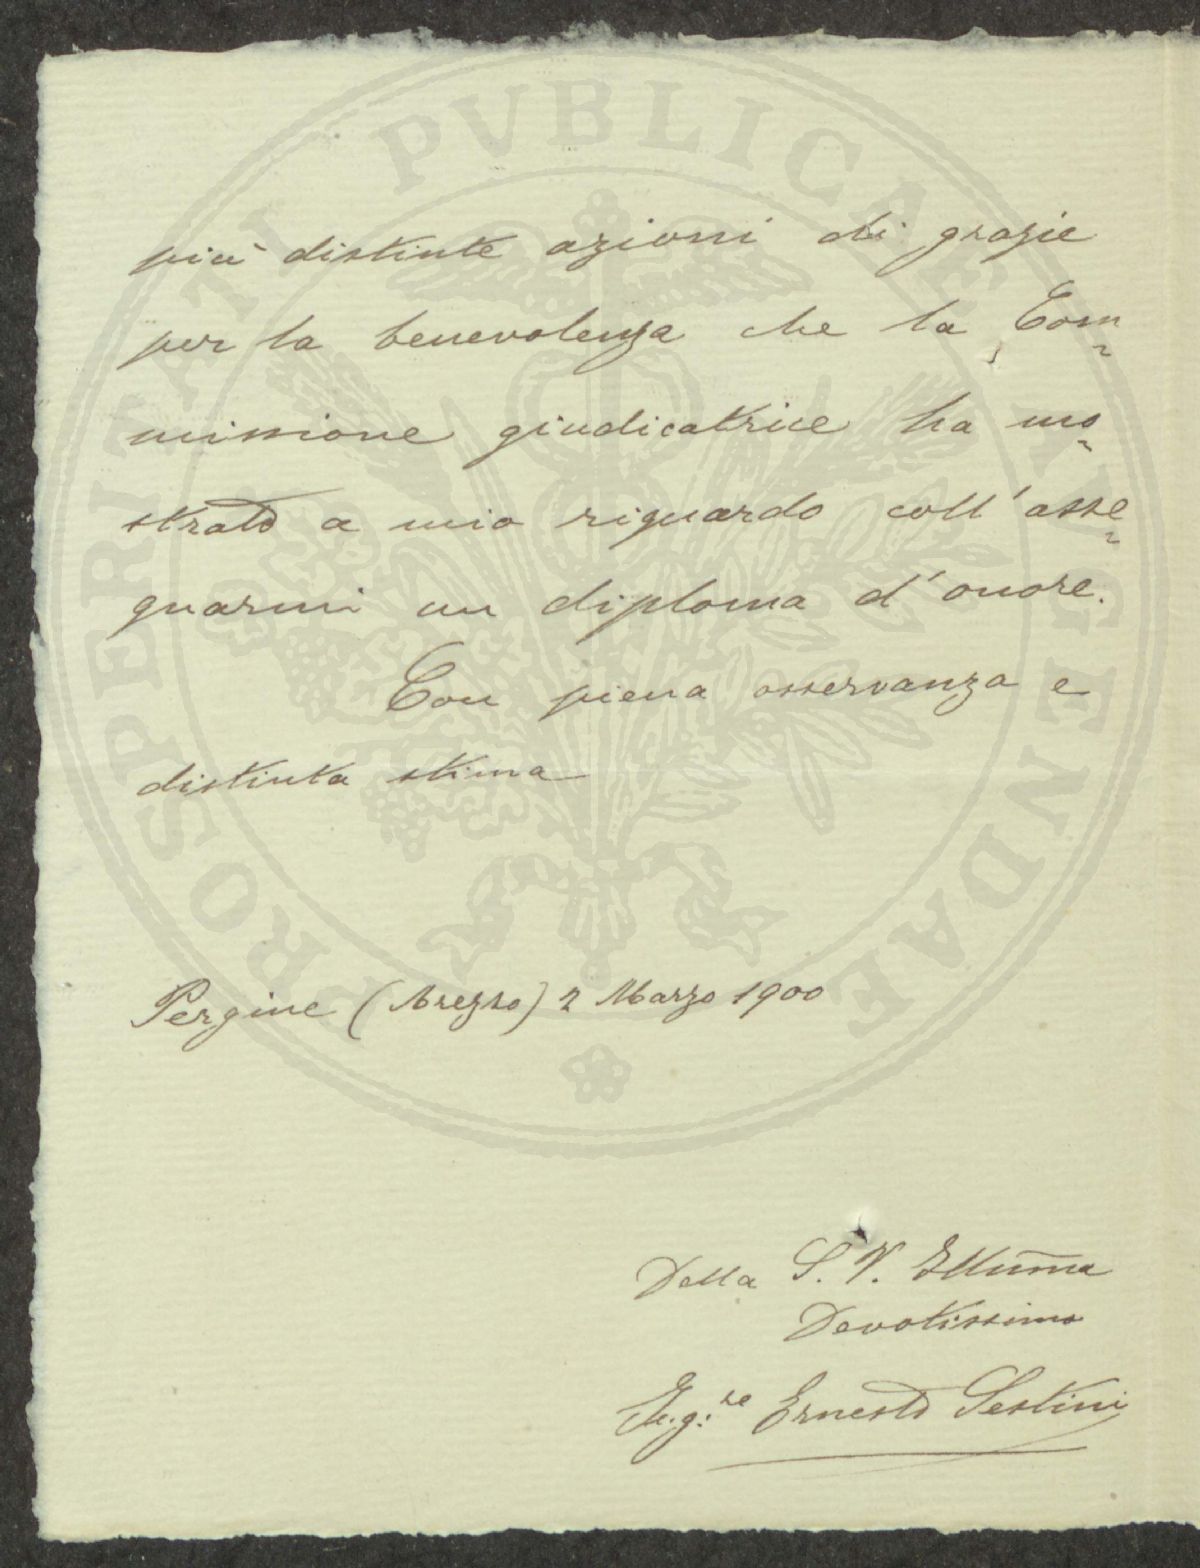 più distinte azioni di grazie
per la benevolenza che la Com-
missione giudicatrice ha mo-
strato a mio riguardo coll'asse-
gnarmi un diploma d'onore.
Con piena osservanza e
distinta stima
Pergine (Arezzo) 2 Marzo 1900
Della S. V. Illum̃a
Devotissimo
Ing.re Ernesto Sestini
PROSPERITATI PVBLICAE AVGENDAE